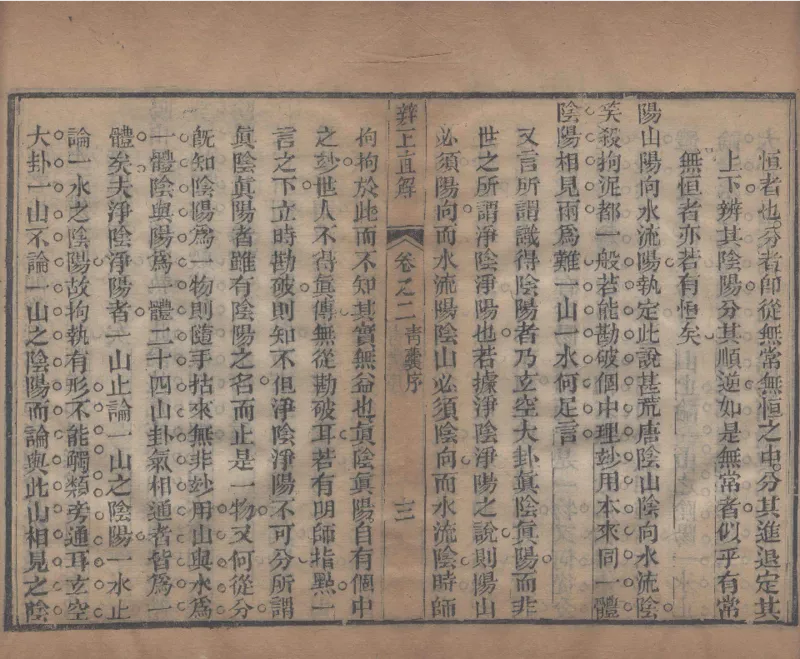 恒者也分者卽從無常無恒之中分其進退定其
上下辨其陰陽分其順逆如是無常者似乎有常
無恒者亦若有恒矣
陽山陽向水流陽執定此說甚荒唐陰山陰向水流陰
笑殺拘泥都一般若能勘破個中理玅用本來同一體
陰陽相見兩爲難一山一水何足言
又言所謂識得陰陽者乃玄空大卦眞陰眞陽而非
世之所謂淨陰淨陽也若據淨陰淨陽之說則陽山
必須陽向而水流陽陰山必須陰向而水流陰時師
辨正直解
卷之二
青囊序
三
拘拘於此而不知其實無益也眞陰眞陽自有個中
之玅世人不得眞傳無從勘破耳若有明師指點一
言之下立時勘破則知不但淨陰淨陽不可分所謂
眞陰眞陽者雖有陰陽之名而止是一物又何從分
旣知陰陽爲一物則隨手拈來無非玅用山與水爲
一體陰與陽爲一體二十四山卦氣相通者皆爲一
體矣夫淨陰淨陽者一山止論一山之陰陽一水止
論一水之陰陽故拘執有形不能觸類旁通耳玄空
大卦一山不論一山之陰陽而論與此山相見之陰